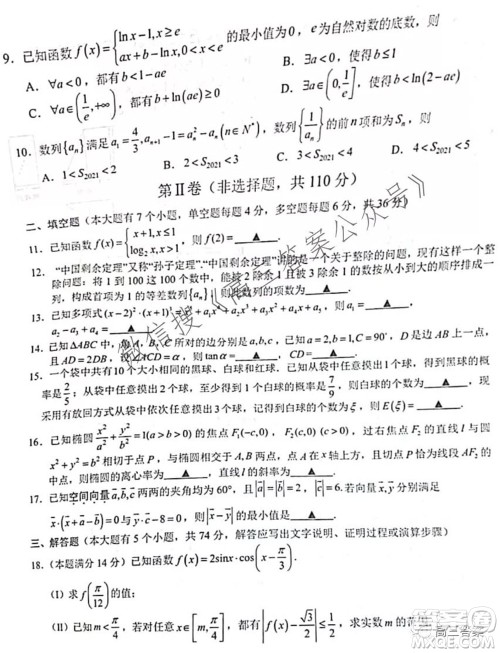 9. 已知函数 f(x)={ln x-1, x≥e; ax+b-ln x, 0<x<e 的最小值为 0，e 为自然对数的底数，则
A. ∀a<0，都有 b<1-ae B. ∃a<0，使得 b<1-ae
C. ∀a∈(1/e,+∞)，都有 b+ln(ae)≥0 D. ∃a∈(0,1/e]，使得 b<ln(2-ae)
10. 数列{aₙ}满足 a₁=4/3, aₙ₊₁-1=aₙ²-aₙ(n∈N*)，数列{1/aₙ}的前 n 项和为 Sₙ，则
A. 1<S₂₀₂₁<2 B. 2<S₂₀₂₁<3 C. D. 3<S₂₀₂₁<4
第Ⅱ卷（非选择题，共 110 分）
二、填空题（本大题有 7 个小题，单空题每题 4 分，多空题每题 6 分，共 36 分）
11. 已知函数 f(x)={x+1, x≤1; log₂x, x>1，则 f(2)= ▲ .
12. “中国剩余定理”又称“孙子定理”.“中国剩余定理”讲的是一个关于整除的问题，现有这样一个整除问题：将 1 到 100 这 100 个数中，能被 2 除余 1 且被 3 除余 1 的数按从小到大的顺序排成一列，构成首项为 1 的等差数列{aₙ}，则此数列的项数为 ▲ .
13. 已知多项式 (x-2)²·(x+1)³=
a₂-a₃+a₄= ▲ .
14. 已知△ABC 中，角 所对的边分别是 a,b,c，已知 a=2,b=1,C=90°，D 是边 AB 上一点，
且 AD=2DB，∠ACD=α，则 tanα= ▲ ，CD= ▲ .
15. 一个袋中共有 10 个大小相同的黑球、白球和红球，已知从袋中任意摸出 1 个球，得到黑球的概
率是 2/5；从袋中任意摸出 2 个球，至少得到 1 个白球的概率是 7/9，则白球的个数为 ▲ ，现
采用有放回方式从袋中依次任意摸出 3 个球，记白球的个数为 ξ，则 E(ξ)= ▲ .
16. 已知椭圆 x²/a²+y²/b²=1(a>b>0) 的焦点 F₁(-c,0)，F₂(c,0)(c>0)，过右焦点 F₂ 的直线 l 与圆
x²+y²=b² 相切于点 P，与椭圆相交于 A,B 两点，点 A 在 x 轴上方，且切点 P 恰为线段 AF₂ 的
中点，则椭圆的离心率为 ▲ ，直线 l 的斜率为 ▲ .
17. 已知空间向量 a,b,c 两两的夹角均为 60°，且|a|=|b|=2，|c|=6，若向量 x,y 满足
x·(x+a-b)=0 与 y·c-8=0，则|x-y|的最小值是 ▲ .
三、解答题（本大题有 5 个小题，共 74 分，解答应写出文字说明，证明过程或演算步骤）
18.（本题满分 14 分）已知函数 f(x)=2sinx·cos(x-π/3).
(I) 求 f(π/12) 的值；
(II) 已知 m<π/4，若对任意 x∈[m,π/4]，都有|f(x)-√3/2|≤1/2，求实数 m 的
高三答案